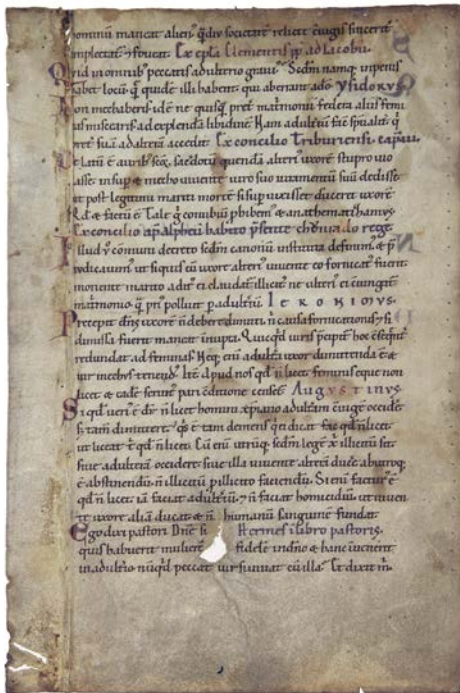 hominum maneat alieni qđ div societate relicti ciugis sinceriter
implectat & foueat. Ex epła Clementis pp ad Iacobū.
Quid in omnib; peccatis adulterio graui? Scđm namq; in penis
habet locū. q̄ quidē illi habent. qui aberrant a dō. ysidorvs
Non mechaberis. id ē ne quisq̄ pret matrimonii federa aliis feminis
misceatur ad explendā libidinē. Nam adulteriū fac spetialit q̄
pret suā ad alterā accedit. Ex concilio Triburiensi. capitu.
Delatū ē aurib; scę, sacdotū quendā alteri uxorē stupro uio
lasse. insup & mecho uiuente uiro suo iuramentū suū dedisse
ut post legitimi mariti mortē si sup uixisset duceret uxorē.
Qd & factū ē. Tale q̄ conubiū phibem & anathematizamus.
Ex concilio apud alpheū habito psente chonrado rege.
Illud ŷ comuni decreto scđm canonū instituta definim. & p̄
iudicauim. ut siquis cū uxore alteri uiuente eo fornicat fuerit.
moriente marito adit ei claudat illicit. ne ulteri ei ciungat
matrimonio. q̄ pri polluit p adulteriū. IERONIMVS.
Precepit dn̄s uxorē n̄ debere dimitti. n̄ causa fornicationis. & si
dimissa fuerit maneat innupta. Quicqd uiris pcipit hoc cseqnt
redundat ad feminas. Neq; eni adultera uxor dimittenda ē. &
uir mechus tenend. Itē. Apud nos qđ n̄ licet feminis eque non
licet & eadē seruit pari cditione censet. Avgvstinvs
Si qđ ueri ē dic. n̄ licet homini xpiano adulterā ciugē occide
s; tam dimittere. qs ē tam demens qi ei dicat fac qđ n̄ licet.
ut liceat t qđ n̄ licet. Cū eni utrūq; scđm legē x illicitū sit.
siue adulterā occidere. siue illa uiuente alterā duce. ab utroq;
ē abstinendū. n̄ illicitū p illicito faciendū. Si eni factur ē
qđ n̄ licet. iā faciat adulteriū. & n̄ faciat homicidiū. ut uiuen
te uxore aliā ducat & n̄ humanū sanguinē fundat.
Ego dixi pastori. Dne si Hermes ī libro pastoris.
quis habuerit mulierē fidelē in dn̄o & hanc iuenerit
in adulterio nūqđ peccat uir si uiuat cū illa. Et dixit m.